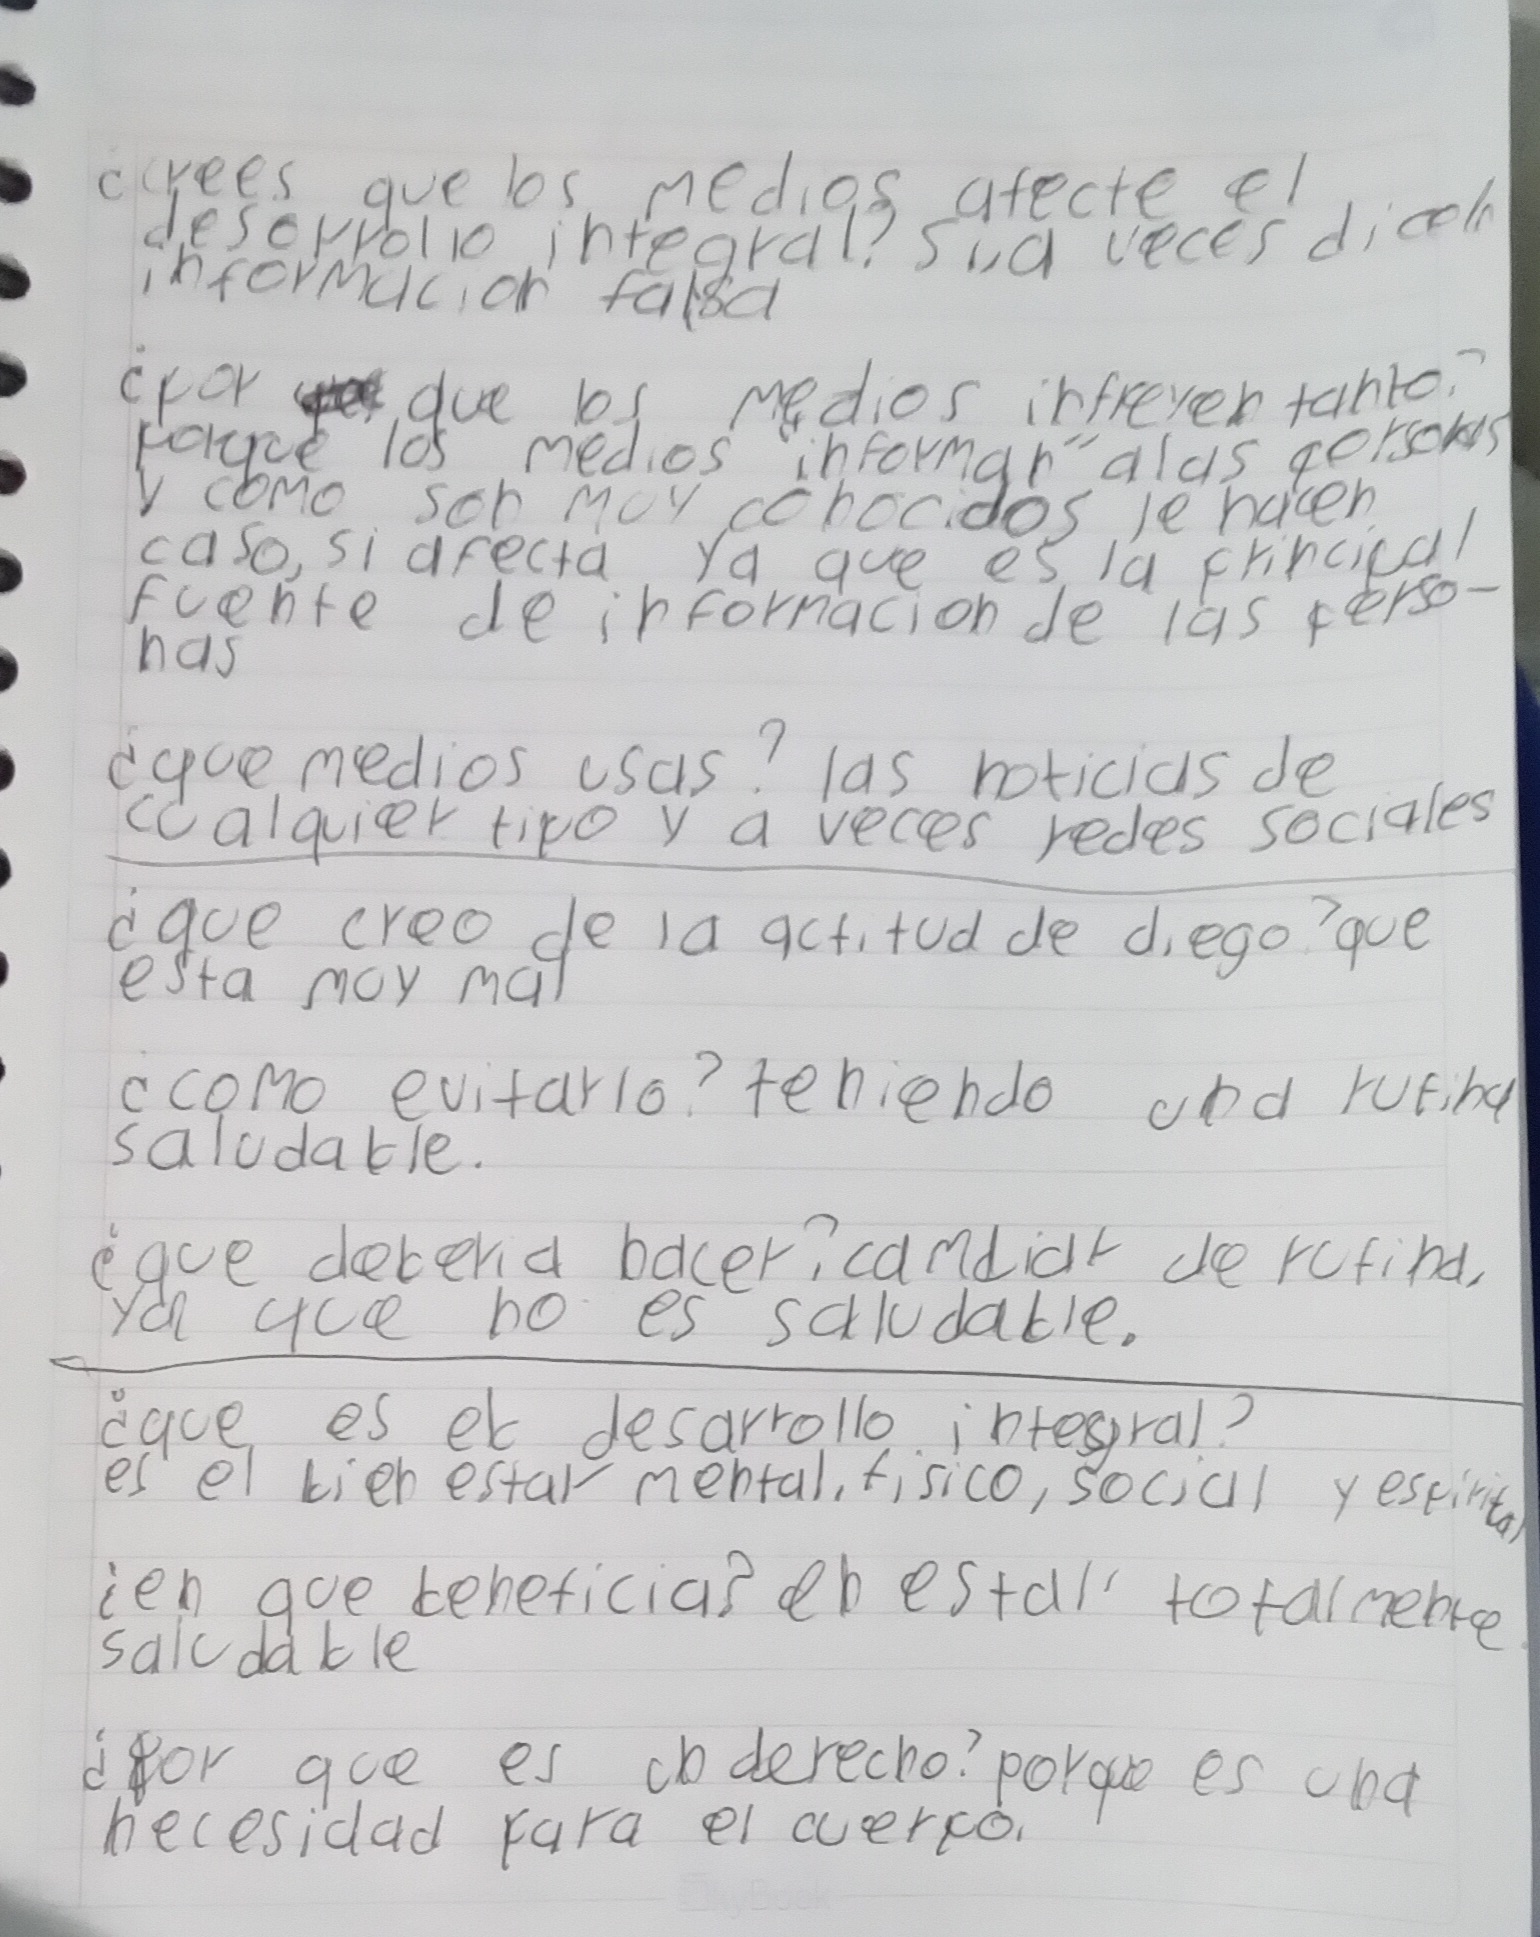 ¿crees que los medios afecte el
desorrollo integral? Si, a veces dicen
informacion falsa
¿por que los medios infreyen tanto?
porque los medios "informan" a las personas
y como son muy conocidos le hacen
caso, si afecta ya que es la principal
fuente de informacion de las perso-
nas
¿que medios usas? las noticias de
cualquier tipo y a veces redes sociales
¿que creo de la actitud de diego? que
esta muy mal
¿como evitarlo? teniendo una rutina
saludable.
¿que deberia hacer? cambiar de rutina,
ya que no es saludable.
¿que es el desarrollo integral?
es el bien estar mental, fisico, social y espirital
¿en que beneficia? en estar totalmente
saludable
¿por que es un derecho? porque es una
necesidad para el cuerpo.
SkyBook